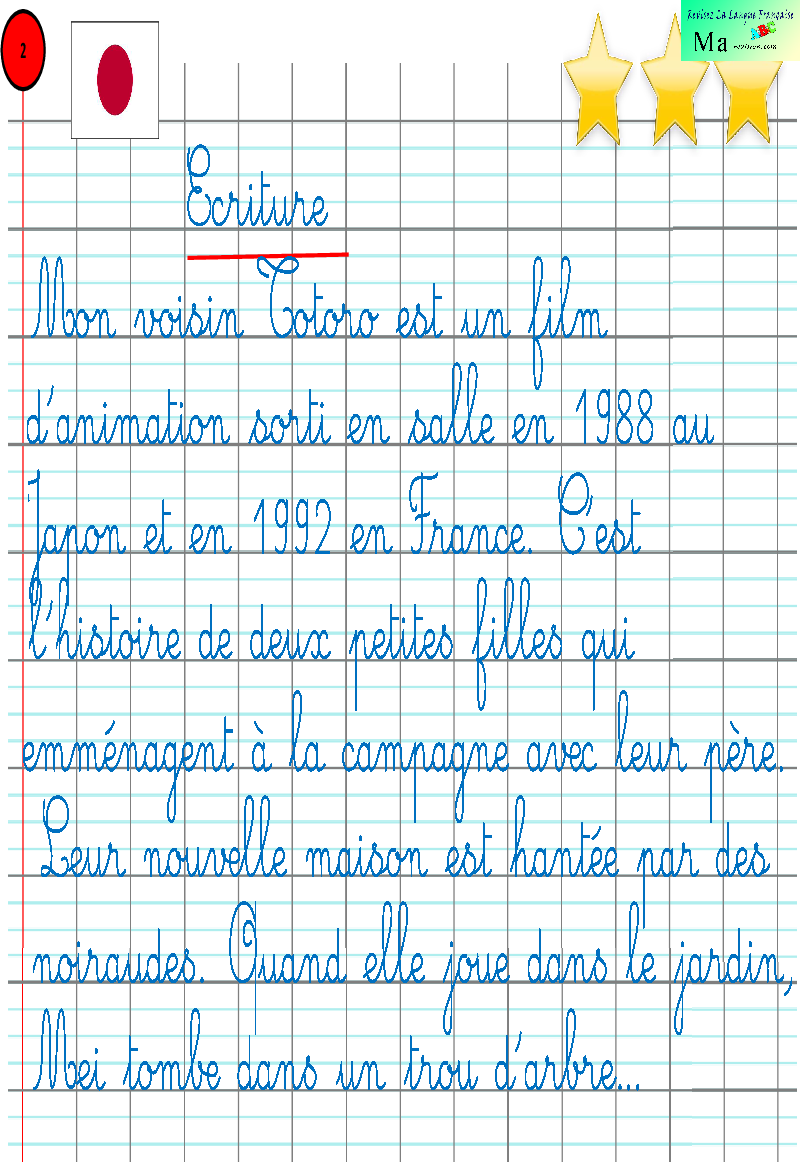 2
Revisez La Langue Française
Ma
Ecriture
Mon voisin Totoro est un film
d'animation sorti en salle en 1988 au
Japon et en 1992 en France. C'est
l'histoire de deux petites filles qui
emménagent à la campagne avec leur père.
Leur nouvelle maison est hantée par des
noiraudes. Quand elle joue dans le jardin,
Mei tombe dans un trou d'arbre...